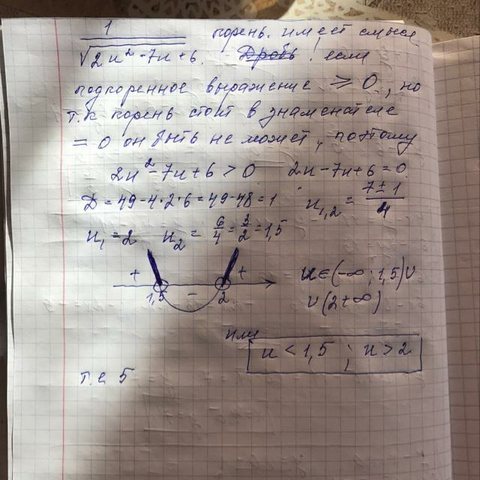 1/√(2x²-7x+6) корень имеет смысл
Дробь если
подкоренное выражение ≥ 0, но
т.к корень стоит в знаменателе
= 0 он быть не может, поэтому
2x²-7x+6 > 0 2x-7x+6=0
D = 49-4·2·6=49-48=1 x₁,₂ = (7±1)/4
x₁=2 x₂ = 6/4 = 3/2 = 1,5
+ - +
1,5 2
x∈(-∞; 1,5)∪
∪(2+∞)
или
x < 1,5 ; x > 2
т.е 5